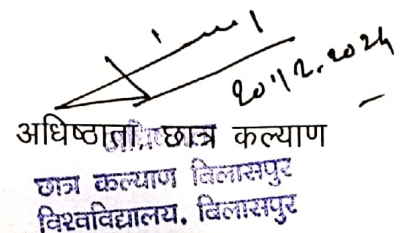 20/12.2024
अधिष्ठाता, छात्र कल्याण
छात्र कल्याण बिलासपुर
विश्वविद्यालय, बिलासपुर